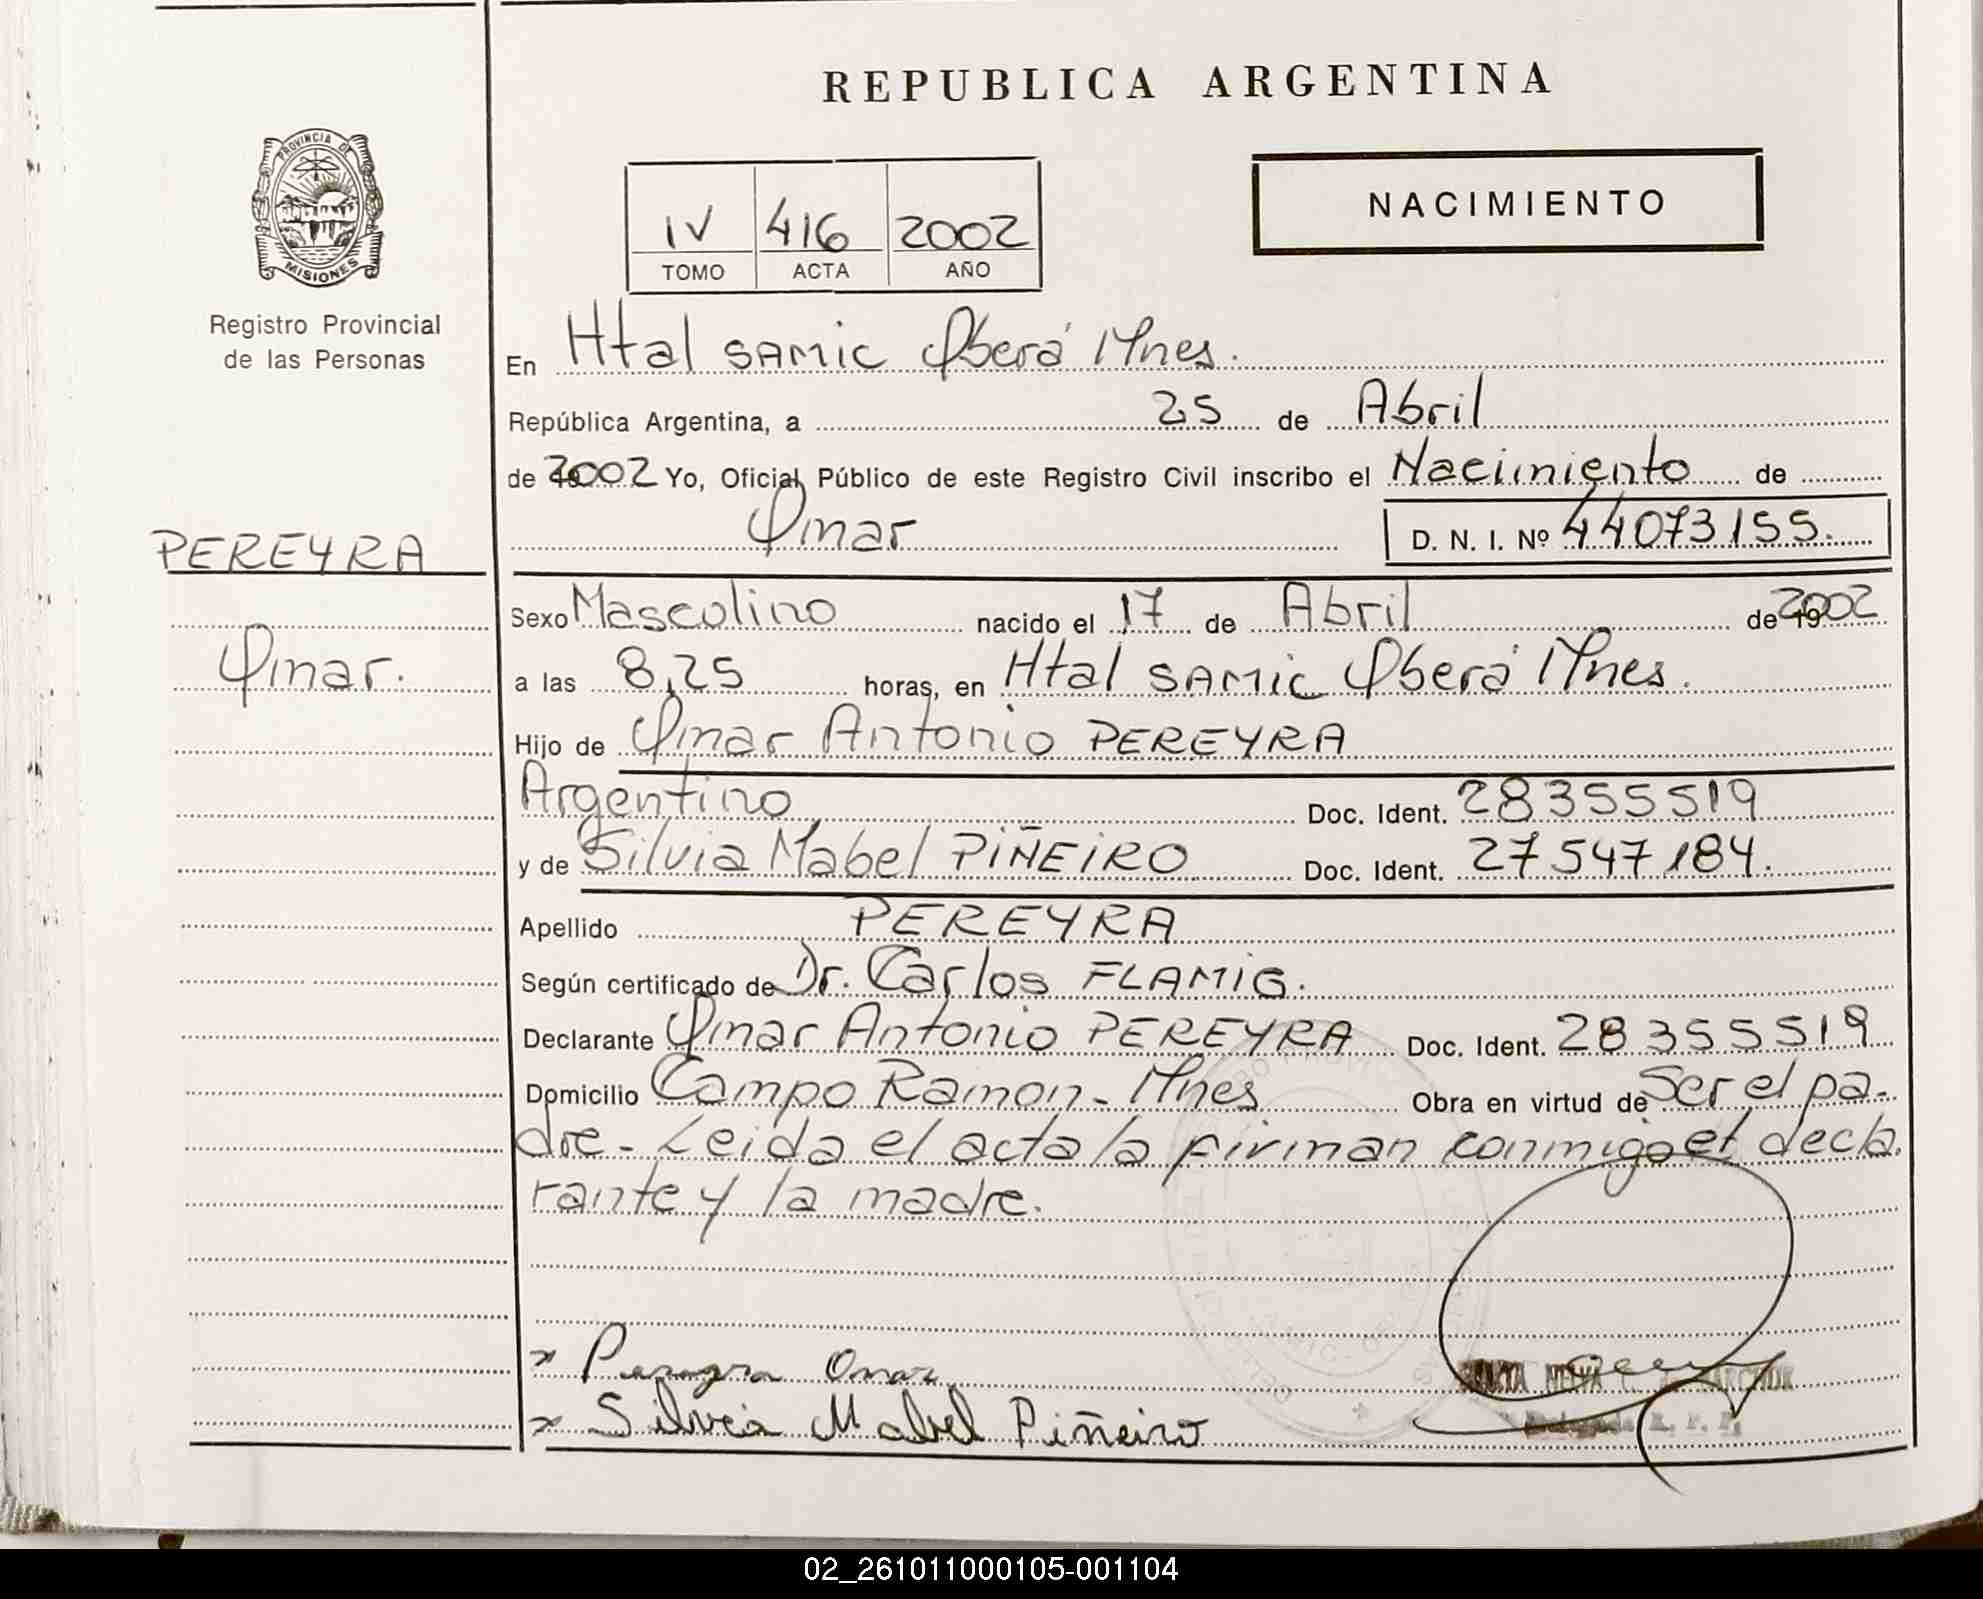 REPUBLICA ARGENTINA
PROVINCIA DE
MISIONES
Registro Provincial
de las Personas
IV 416 2002
TOMO ACTA AÑO
NACIMIENTO
En Htal SAMIC Oberá Mnes.
República Argentina, a 25 de Abril
de 2002 Yo, Oficial Público de este Registro Civil inscribo el Nacimiento de
Omar D. N. I. Nº 44073155.
PEREYRA
Omar.
Sexo Masculino nacido el 17 de Abril de 2002
a las 8,25 horas, en Htal SAMIC Oberá Mnes.
Hijo de Omar Antonio PEREYRA
Argentino Doc. Ident. 28355519
y de Silvia Mabel PIÑEIRO Doc. Ident. 27547184.
Apellido PEREYRA
Según certificado de Dr. Carlos FLAMIG.
Declarante Omar Antonio PEREYRA Doc. Ident. 28355519
Domicilio Campo Ramon - Mnes Obra en virtud de Ser el pa-
dre - Leida el acta la firman conmigo el decla.
rante y la madre.
x Pereyra Omar
x Silvia Mabel Piñeiro
02_261011000105-001104